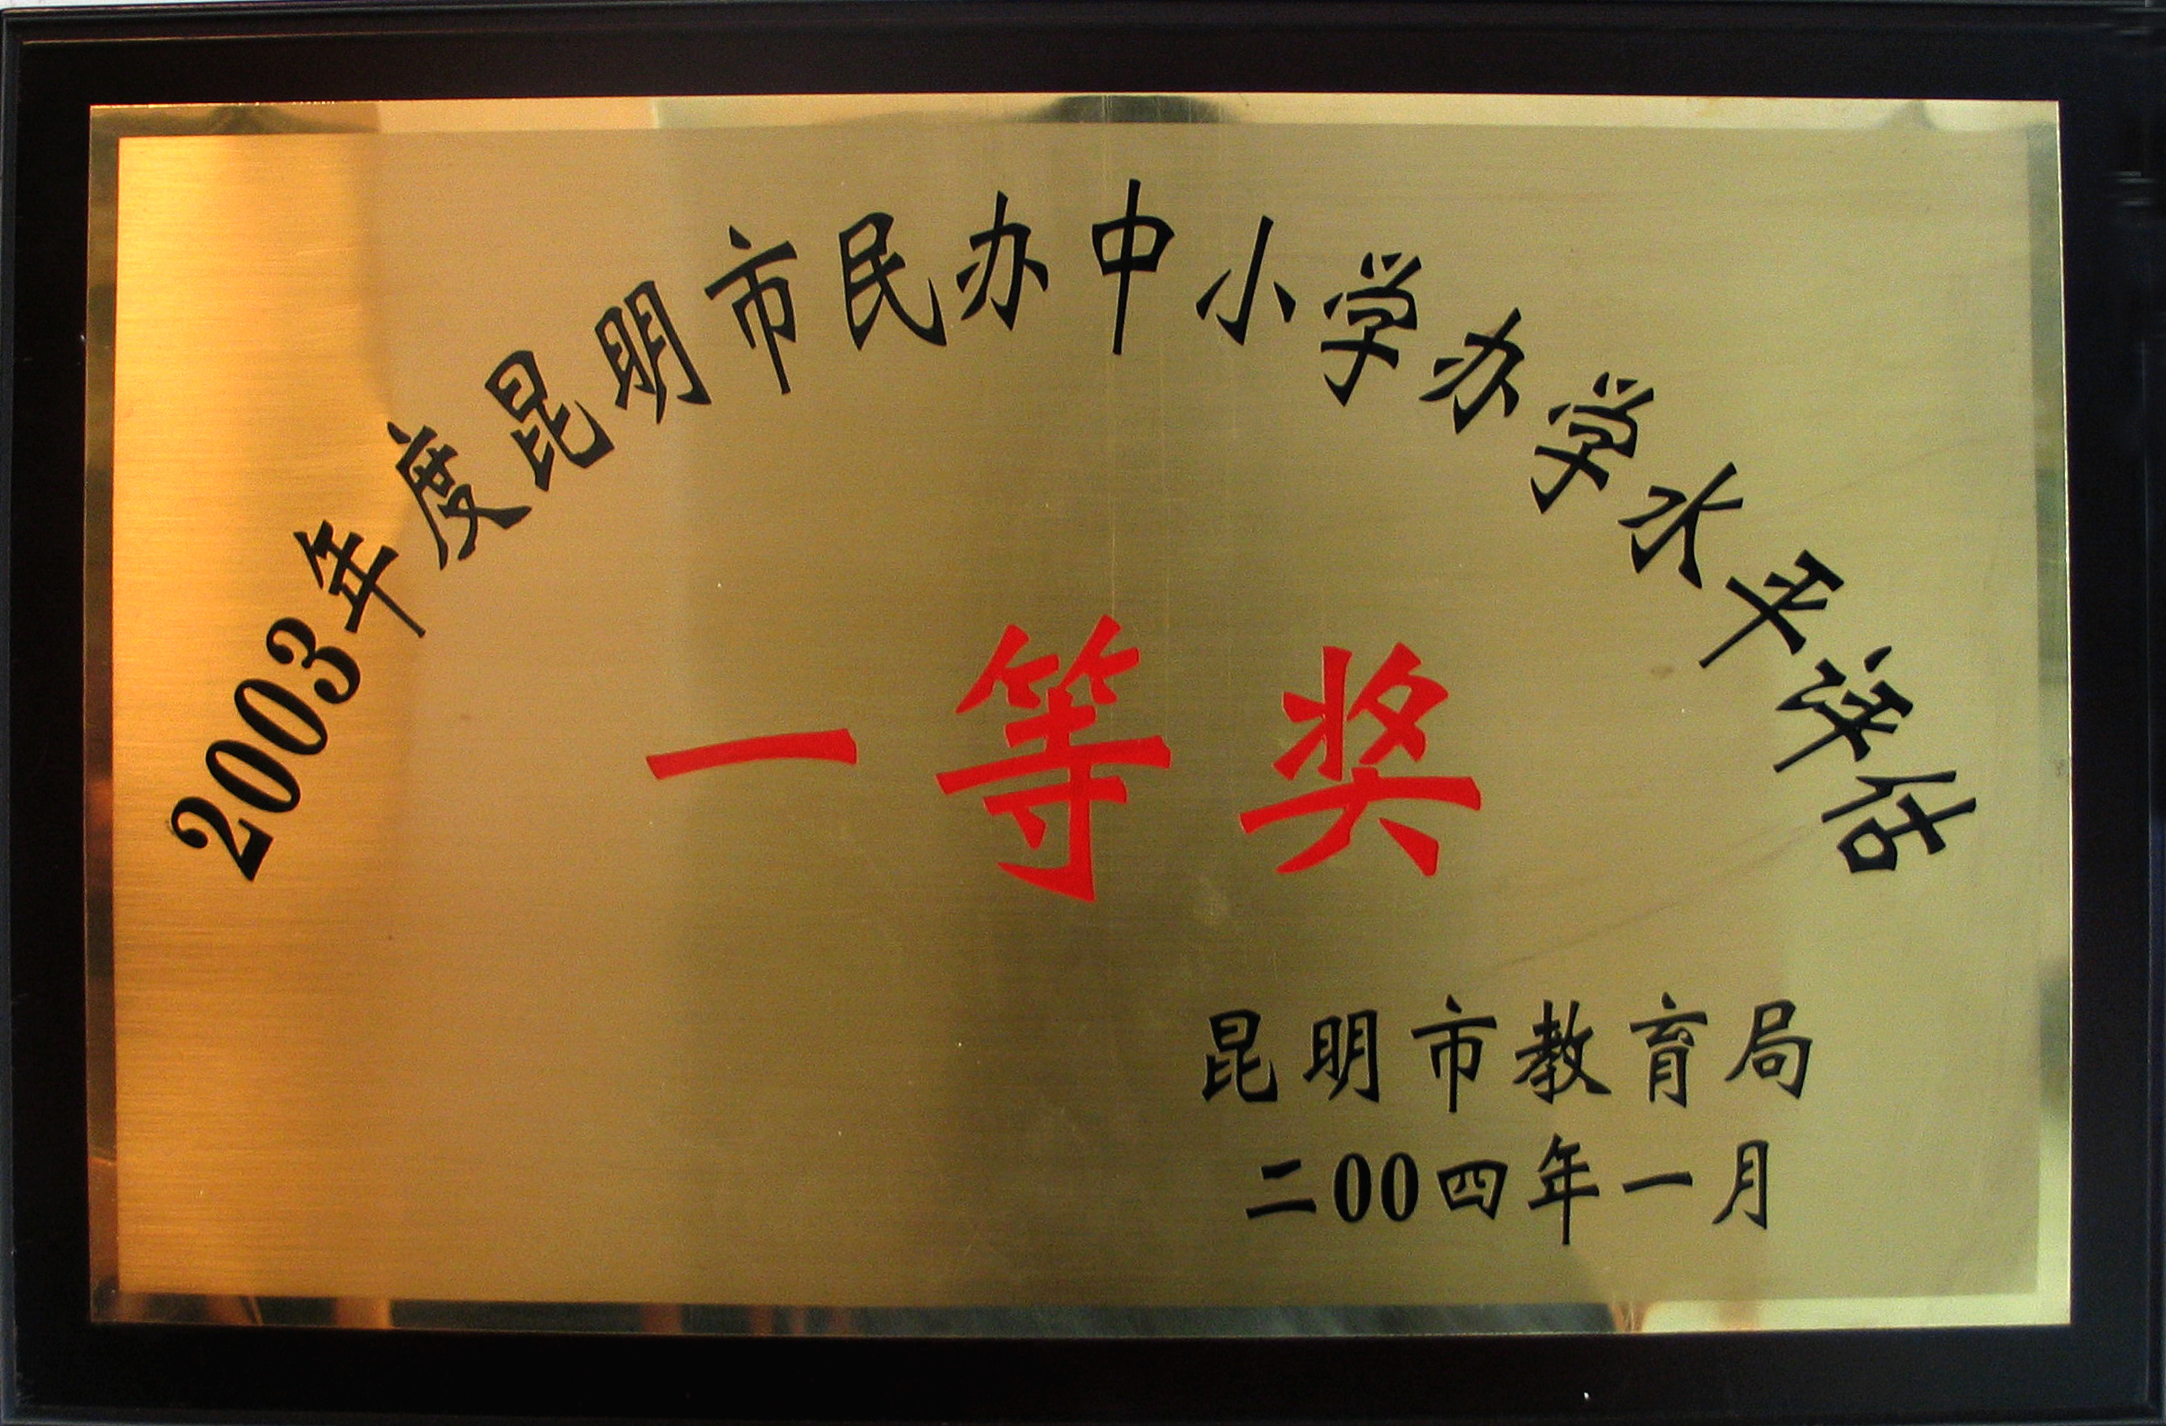 2003年度昆明市民办中小学办学水平评估
一等奖
昆明市教育局
二00四年一月